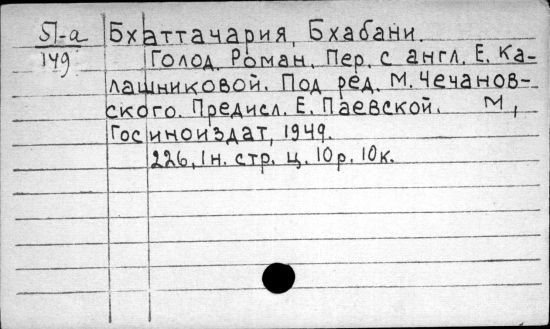 51-а Бхаттачария, Бхабани.
149 Голод. Роман. Пер. с англ. Е. Ка-
лашниковой. Под ред. М. Чечанов-
ского. Предисл. Е. Паевской. М,
Гос иноиздат, 1949.
226, 1 н. стр. ц. 10 р. 10 к.